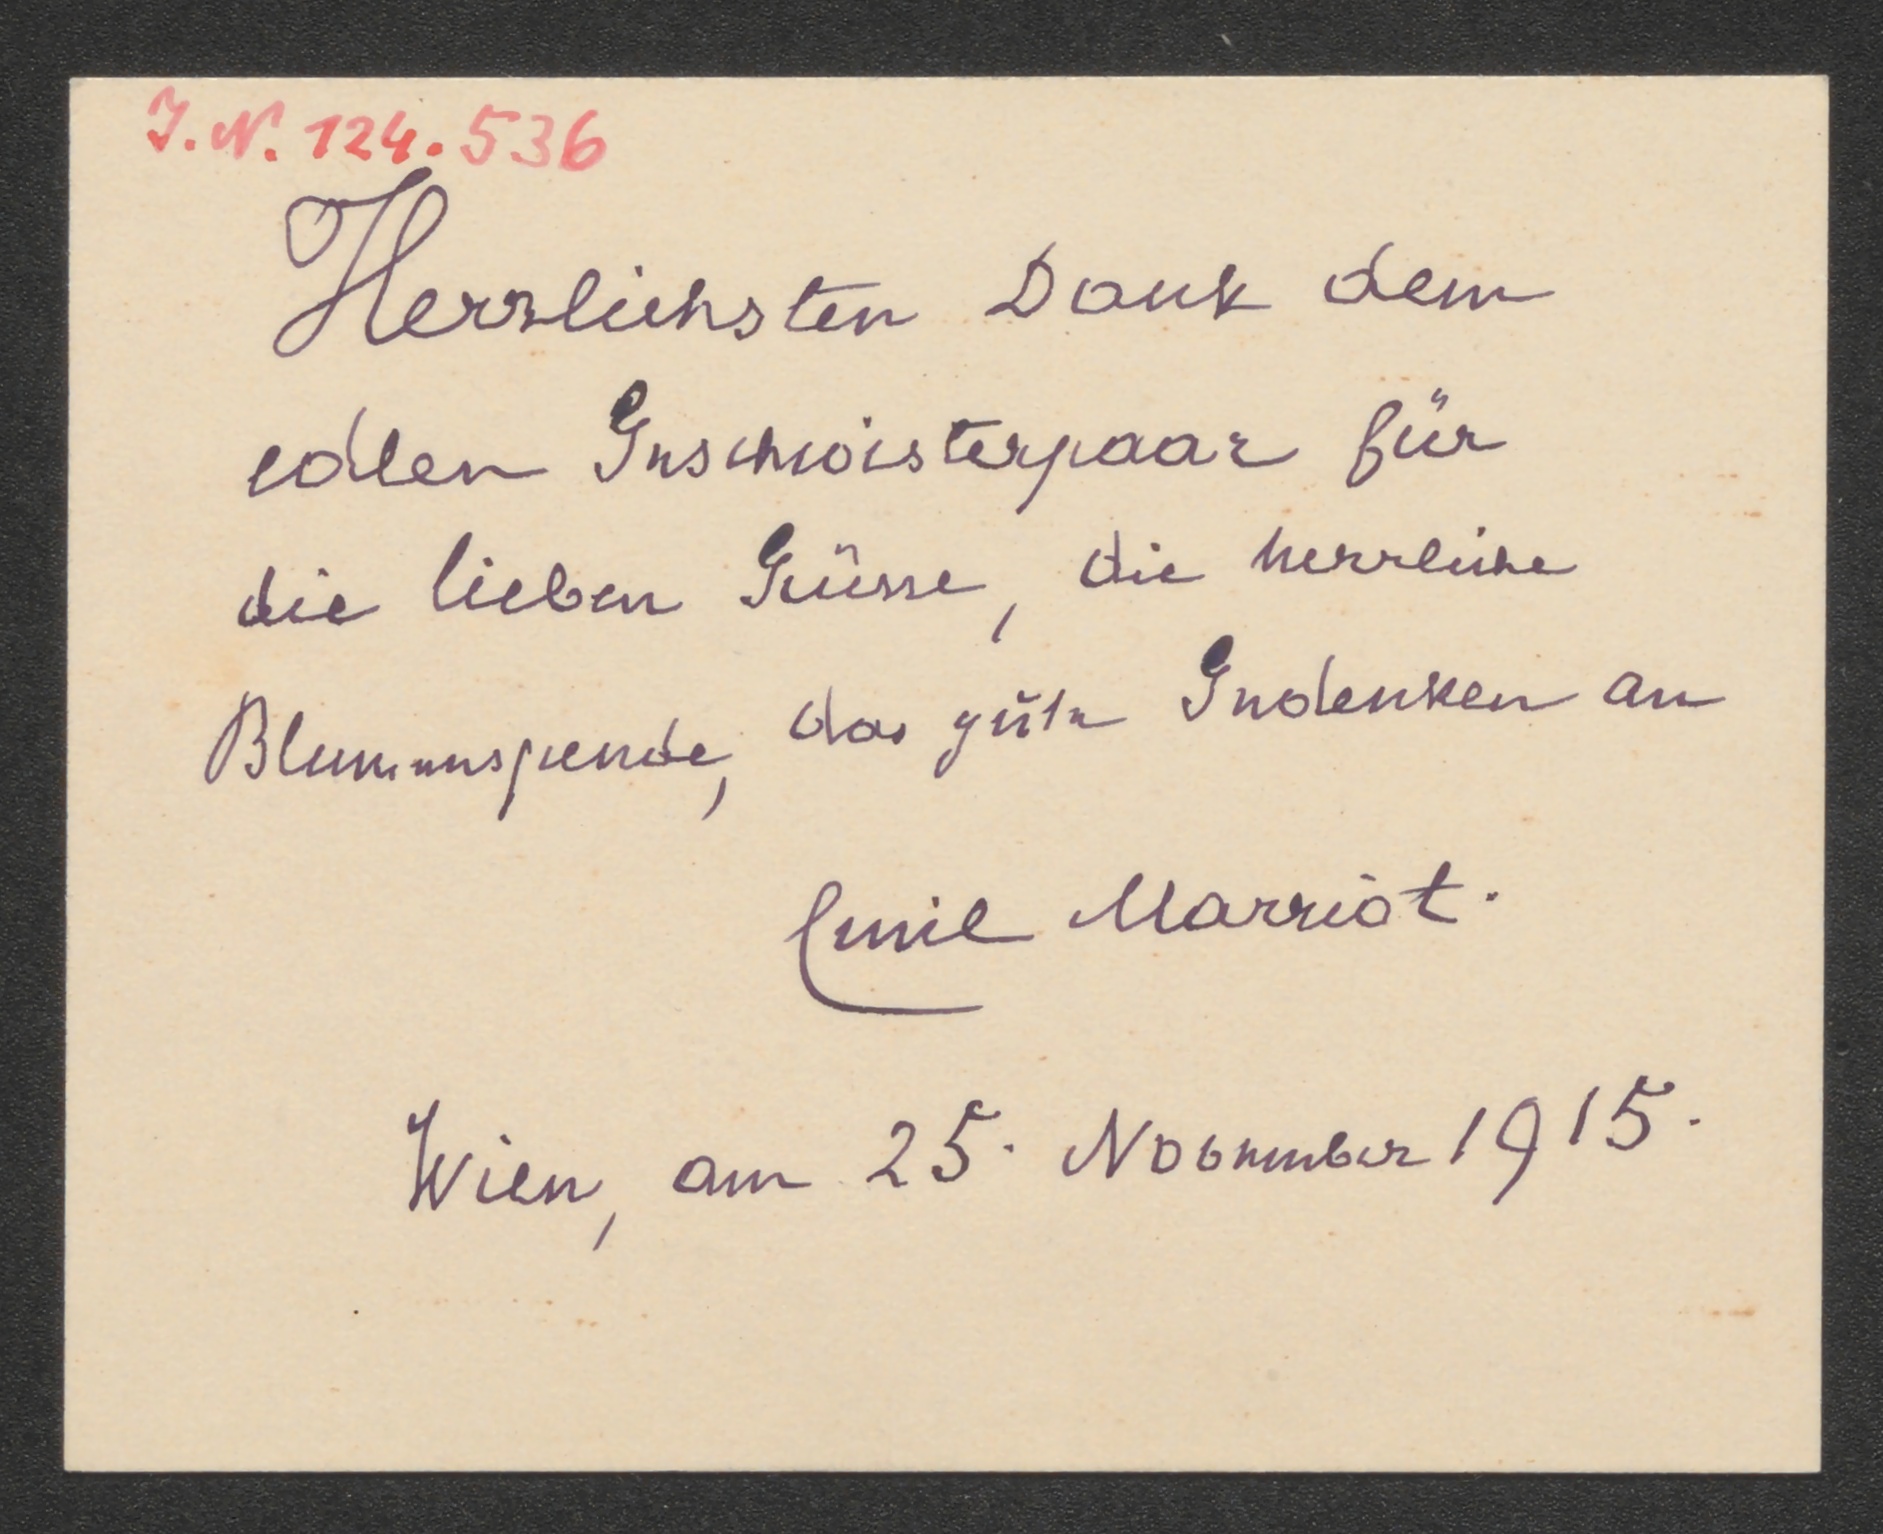 J.N. 124.536
Herzlichsten Dank dem
edlen Geschwisterpaar für
die lieben Grüsse, die herrliche
Blumenspende, das gute Gedenken an
Emil Marriot.
Wien, am 25. November 1915.